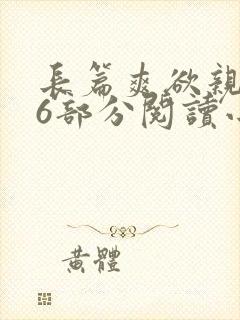 長篇爽欲親
6部分閱讀小
黃體